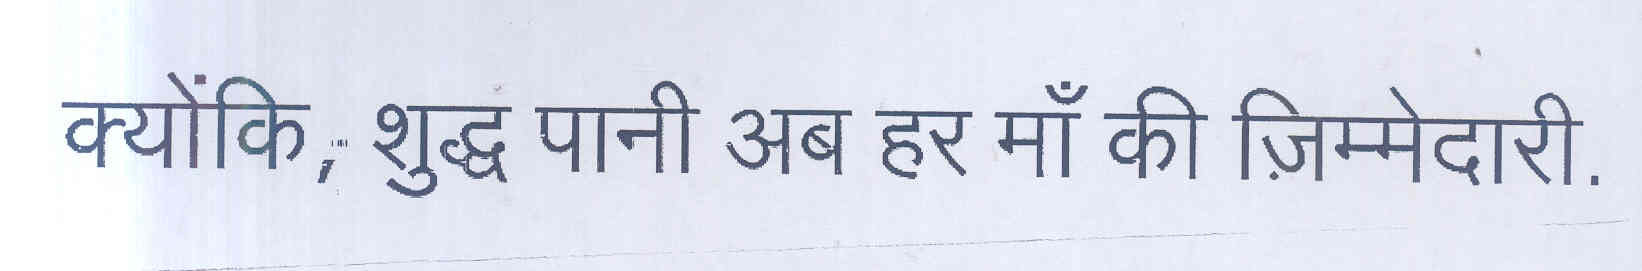 क्योंकि, शुद्ध पानी अब हर माँ की ज़िम्मेदारी.